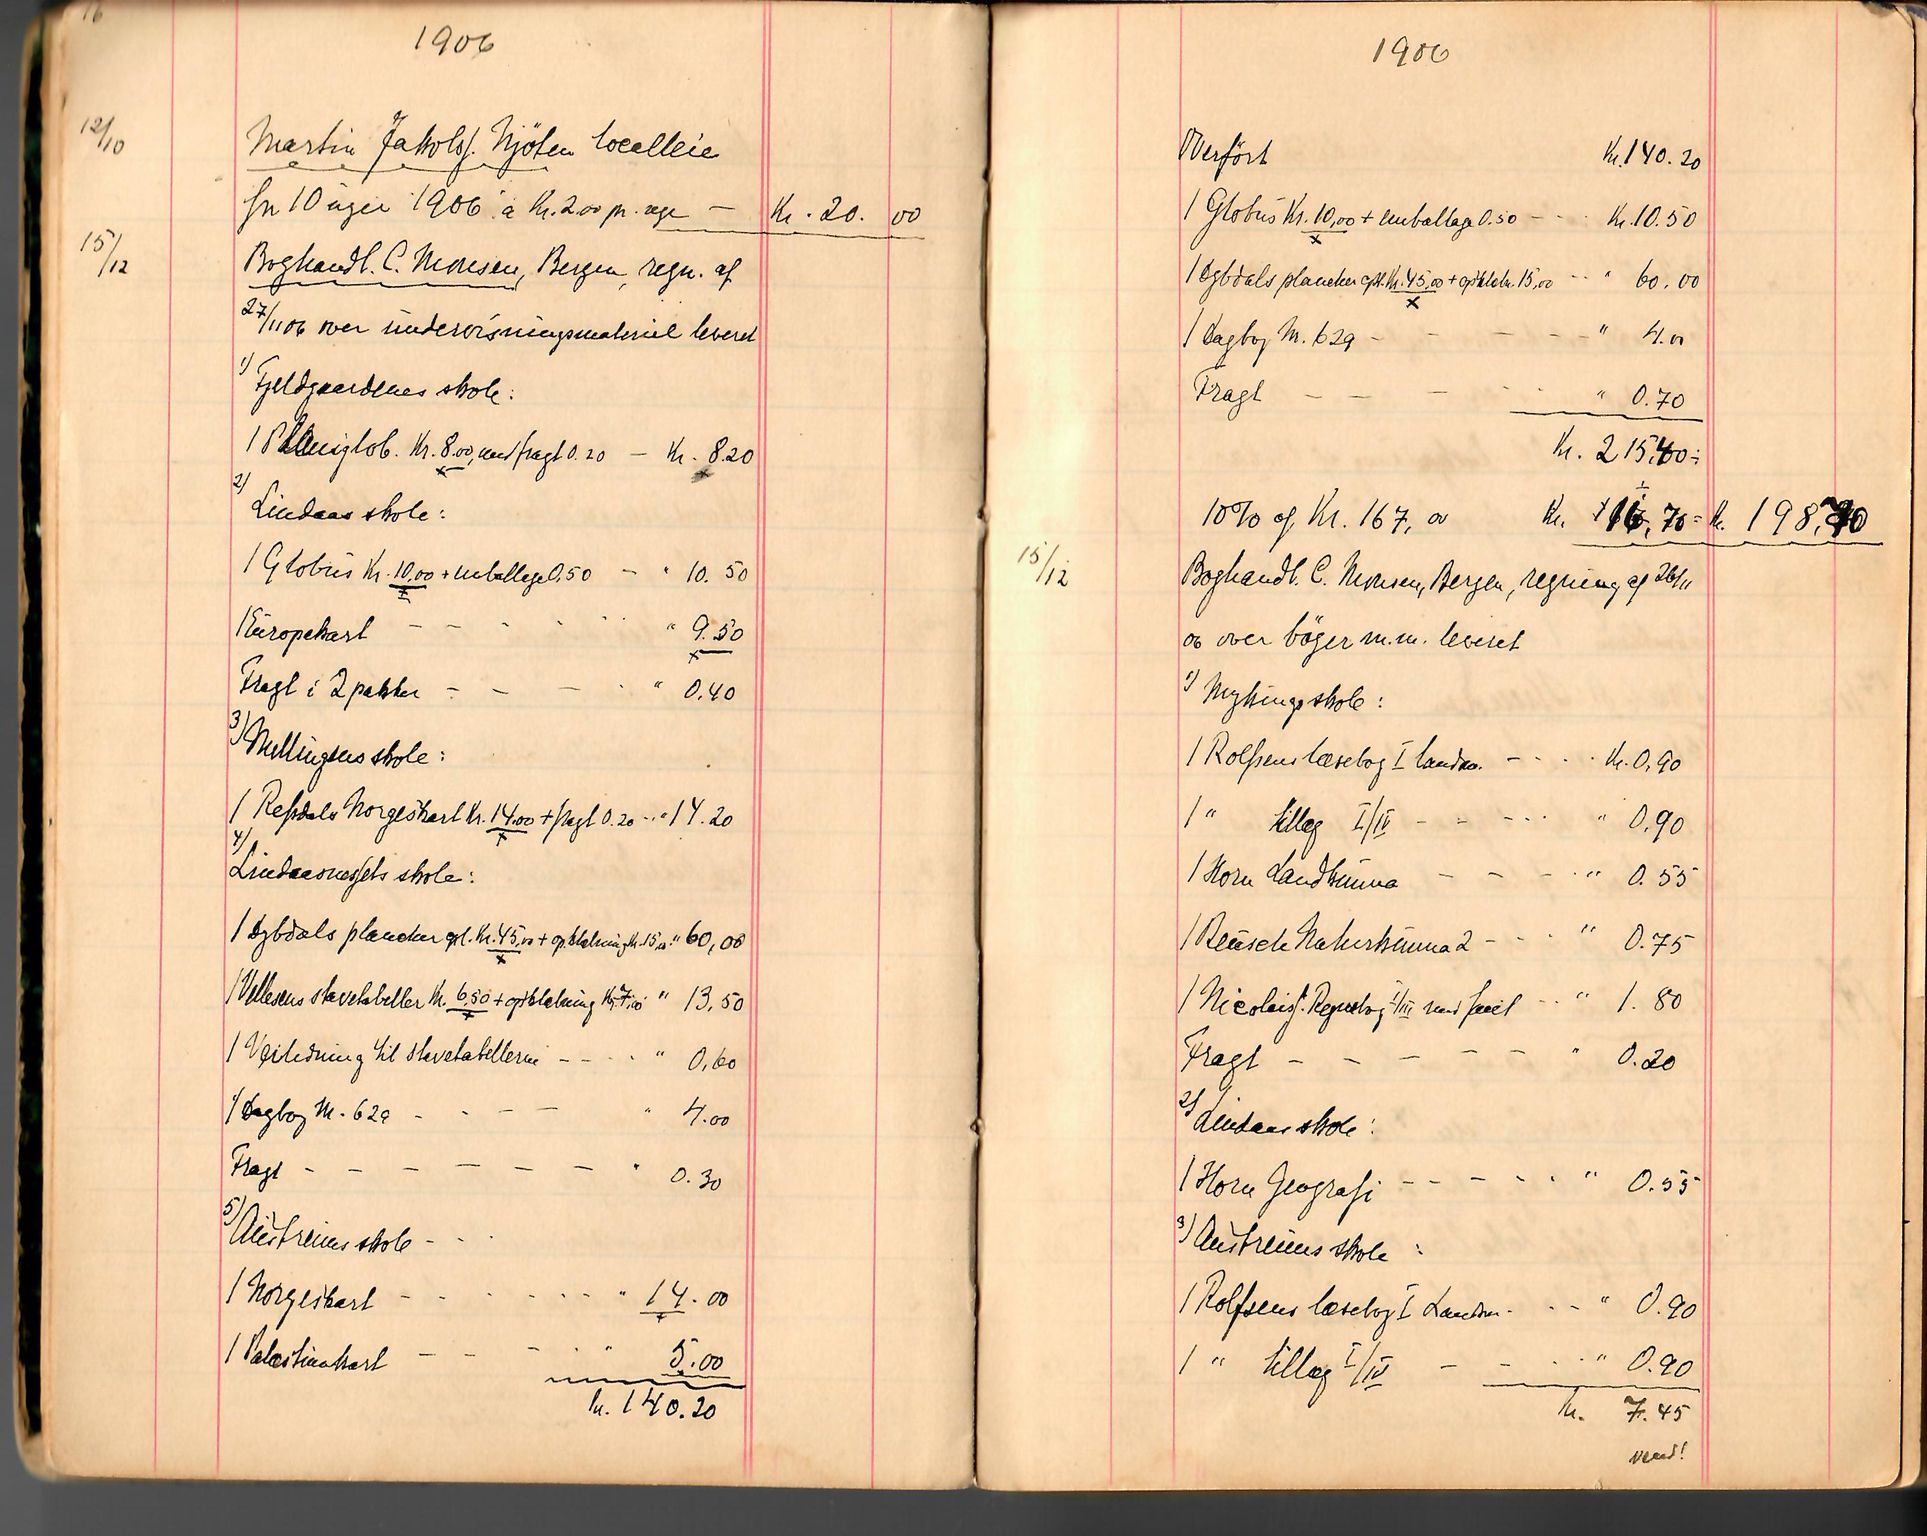 16
1906
12/10
Martin Jakobs. Njöten localleie
for 10 uger 1906 à Kr. 2.00 pr. uge — Kr. 20. 00
15/12
Boghandl. C. Monsen, Bergen, regn. af
27/11 06 over undervisningsmateriel leveret
1) Fjeldgaardenes skole:
1 Planiglob. Kr. 8.00, med fragt 0.20 — Kr. 8.20
2) Lindaas skole:
1 Globus Kr. 10,00 + emballage 0,50 — " 10. 50
1 Europakart - - - - " 9.50
Fragt i 2 pakker - - - " 0.40
3) Mellingens skole:
1 Refsdals Norgeskart Kr. 14.00 + fragt 0.20 - " 14.20
4) Lindaasnessets skole:
1 Dybdals plancher opl. Kr. 45,00 + opklæbning Kr. 15,00 " 60,00
1 Vellesens stavetabeller Kr. 6,50 + opklæbning Kr. 7,00 " 13,50
1 Veiledning til stavetabellerne - - - " 0,60
1 Dagbog Nr. 62a - - - - " 4.00
Fragt - - - - - - " 0.30
5) Austreims skole - - -
1 Norgeskart - - - - - " 14.00
1 Palæstinakart - - - - " 5.00
Kr. 140.20
1906
Overført Kr. 140.20
1 Globus Kr. 10,00 + emballage 0.50 - - - Kr. 10.50
1 Dybdals plancher opl. Kr. 45,00 + opklæbn. 15,00 - - " 60.00
1 Dagbog Nr. 62a - - - - - " 4.00
Fragt - - - - - " 0.70
Kr. 215,40
10% af Kr. 167,00 Kr. 16,70 = Kr. 198,70
15/12
Boghandl. C. Monsen, Bergen, regning af 26/11
06 over bøger m.m. leveret
1) Mykings skole:
1 Rolfsens læsebog I landsm. - - - Kr. 0,90
1 " tillæg I/IV - - - - " 0,90
1 Horn Landkunna - - - - " 0.55
1 Reusch Naturkunna 2 - - - " 0.75
1 Nicolais. Regnebog I/III med facit - - " 1.80
Fragt - - - - - - " 0.20
2) Lindaas skole:
1 Horn Geografi - - - - - " 0.55
3) Austreims skole:
1 Rolfsens læsebog I Landsm. - - - " 0.90
1 " tillæg I/IV - - - - " 0.90
Kr. 7.45
Vend!